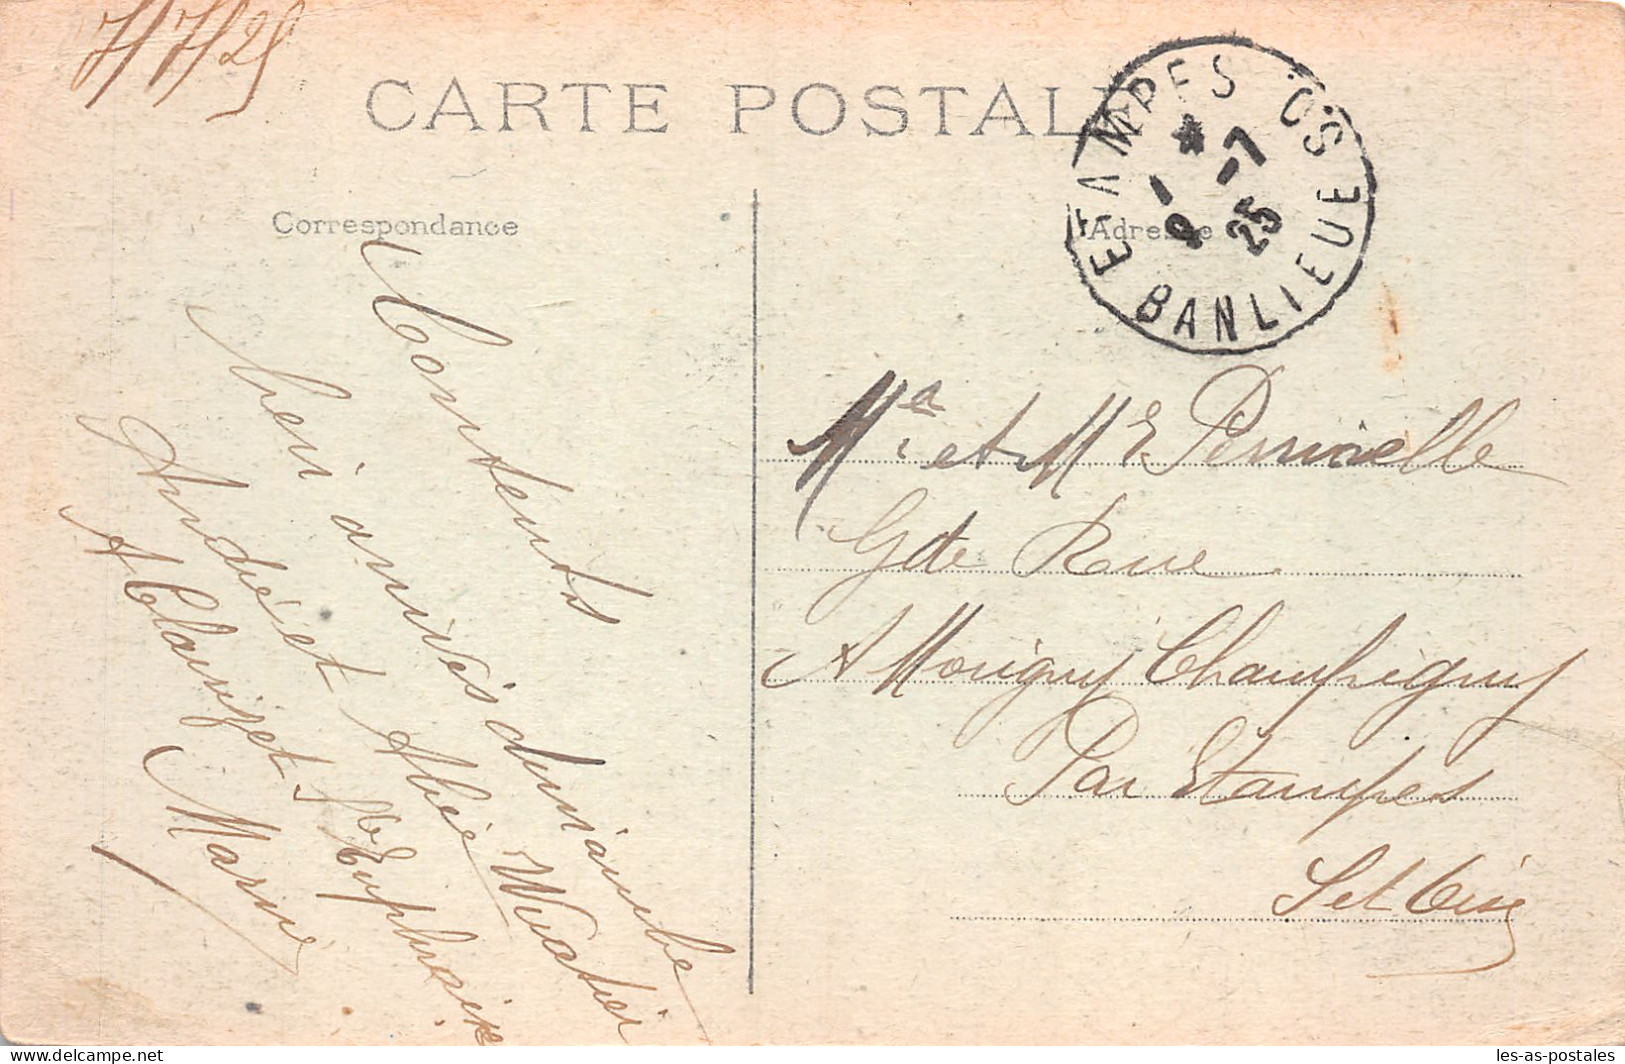 7/7/25
CARTE POSTALE
ETAMPES
S OS
BANLIEUE
* 1 -7
25
Correspondance
Adresse
Contents
bien arrivés dimanche
André et Abie Watier
A Clauizet Ste Euphraise
Marne
Mr et Mme Perrinelle
Gde Rue
A Morigny Champigny
Par Etampes
S et Oise
delcampe.net
les-as-postales